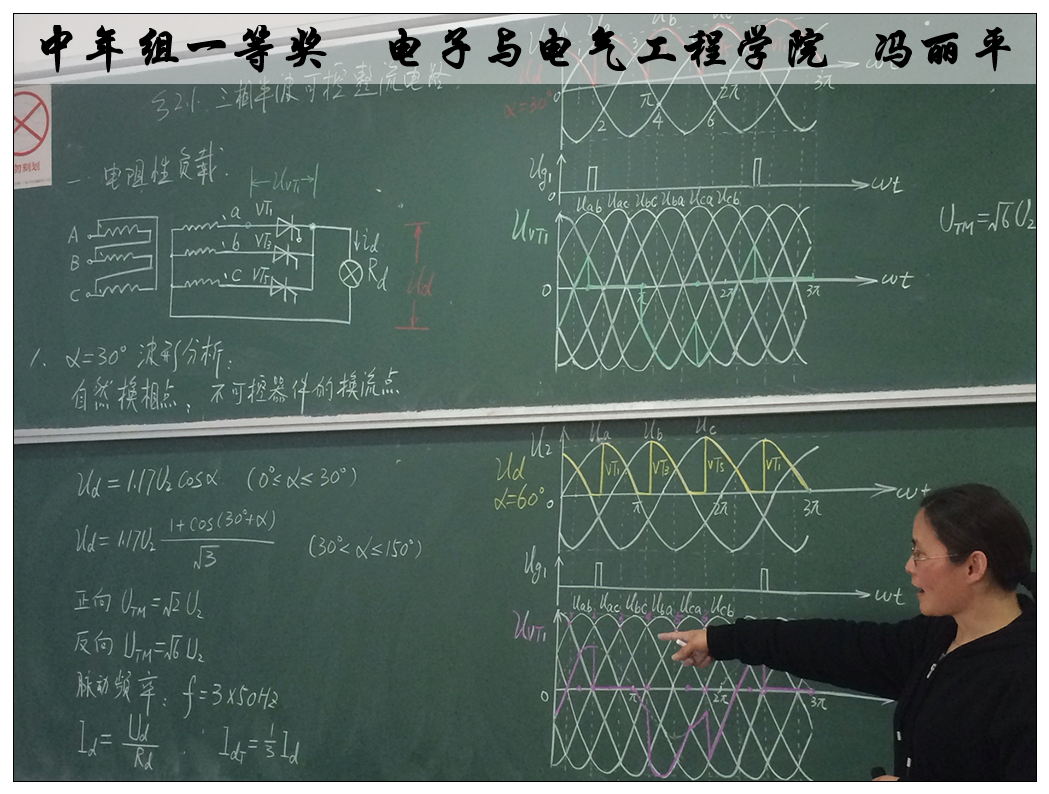 中年组一等奖 电子与电气工程学院 冯丽平
§2.1. 三相半波可控整流电路
一. 电阻性负载.
|←U_VT1→|
A
B
C
a VT₁
b VT₃
c VT₅
i_d
R_d
U_d
1. α=30° 波形分析:
自然换相点: 不可控器件的换流点
U_d
α=30°
U_b
0 π 2π 3π ωt
2 4 6
U_g1
0 ωt
U_ab U_ac U_bc U_ba U_ca U_cb
U_VT1
0 π 2π 3π ωt
U_TM=√6U₂
U_d=1.17U₂cosα (0°≤α≤30°)
U_d=1.17U₂ (1+cos(30°+α))/√3 (30°<α≤150°)
正向 U_TM=√2U₂
反向 U_TM=√6U₂
脉动频率: f=3×50Hz
I_d=U_d/R_d . I_dT=1/3 I_d
U₂ U_a U_b U_c
U_d
α=60°
VT₁ VT₃ VT₅ VT₁
0 π 2π 3π ωt
U_g1
ωt
U_ab U_ac U_bc U_ba U_ca U_cb
U_VT1
0 π 2π 3π